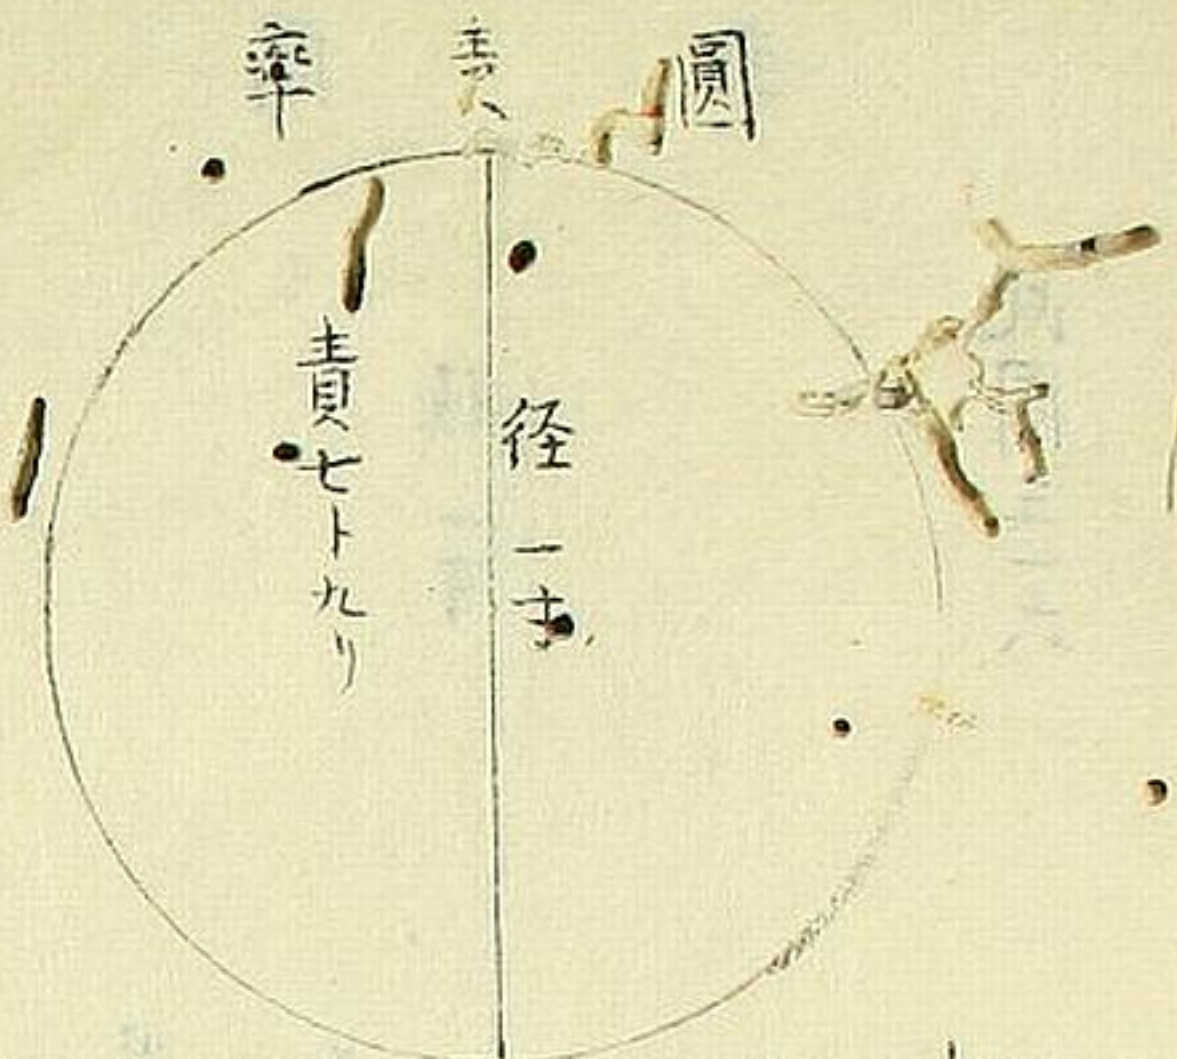 圓責率
径一寸
責七ト九リ